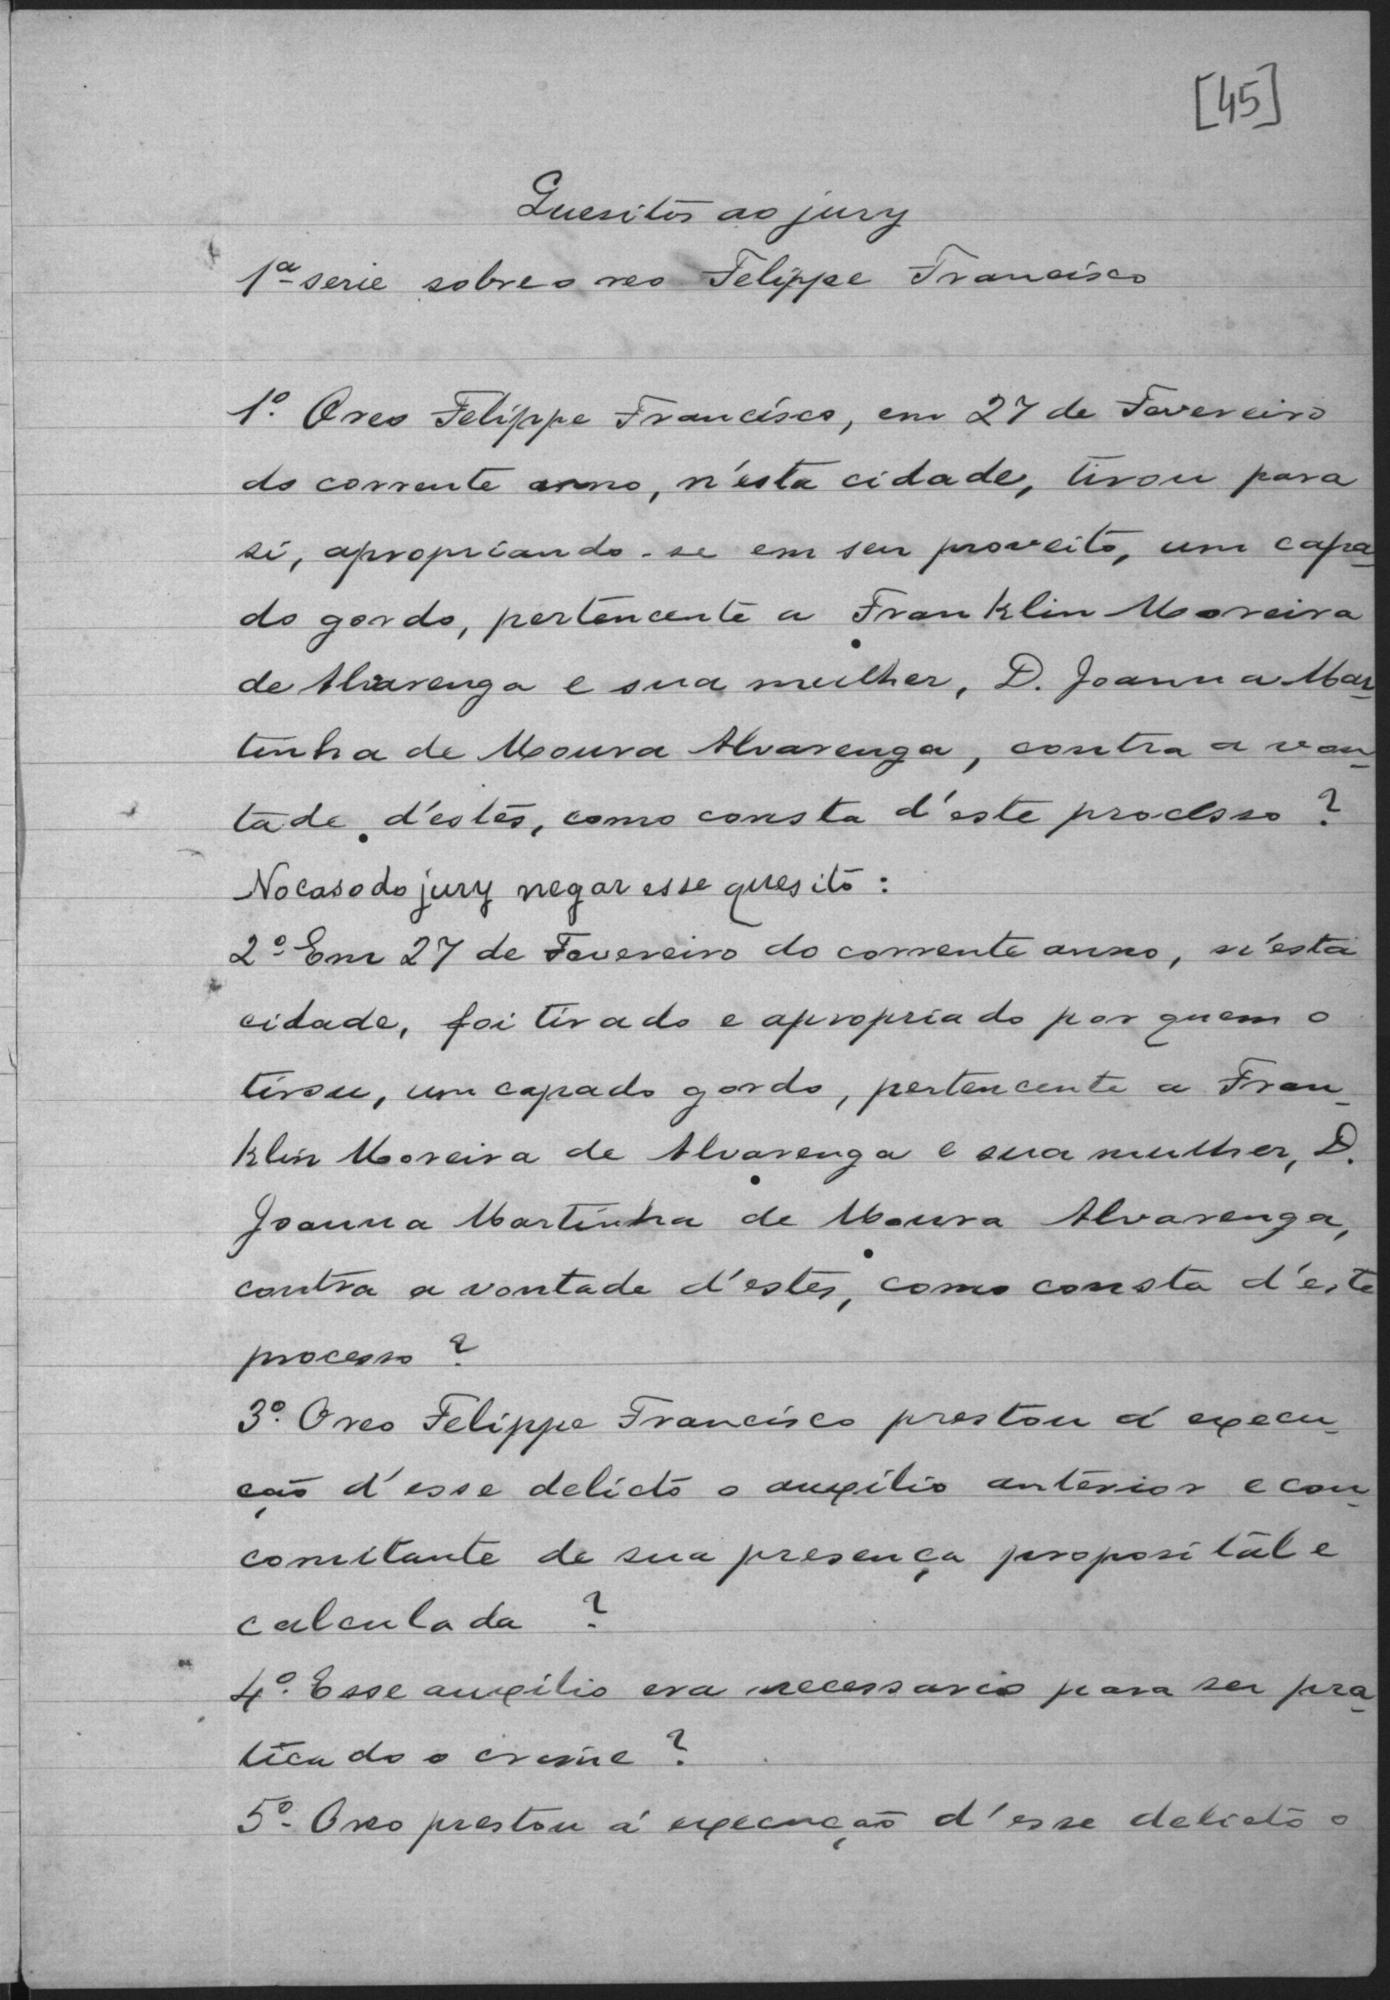 [45]
Quesitos ao jury
1ª serie sobre o reo Felippe Francisco
1º. O reo Felippe Francisco, em 27 de Fevereiro
do corrente anno, n'esta cidade, tirou para
si, apropriando-se em seu proveito, um capa-
do gordo, pertencente a Franklin Moreira
de Alvarenga e sua mulher, D. Joanna Mar-
tinha de Moura Alvarenga, contra a von-
tade d'estes, como consta d'este processo?
No caso do jury negar esse quesito:
2º. Em 27 de Fevereiro do corrente anno, n'esta
cidade, foi tirado e apropriado por quem o
tirou, um capado gordo, pertencente a Fran-
klin Moreira de Alvarenga e sua mulher, D.
Joanna Martinha de Moura Alvarenga,
contra a vontade d'estes, como consta d'este
processo?
3º. O reo Felippe Francisco prestou á execu-
ção d'esse delicto o auxilio anterior e con-
comitante de sua presença proposital e
calculada?
4º. Esse auxilio era necessario para ser pra-
ticado o crime?
5º. O reo prestou á execução d'esse delicto o